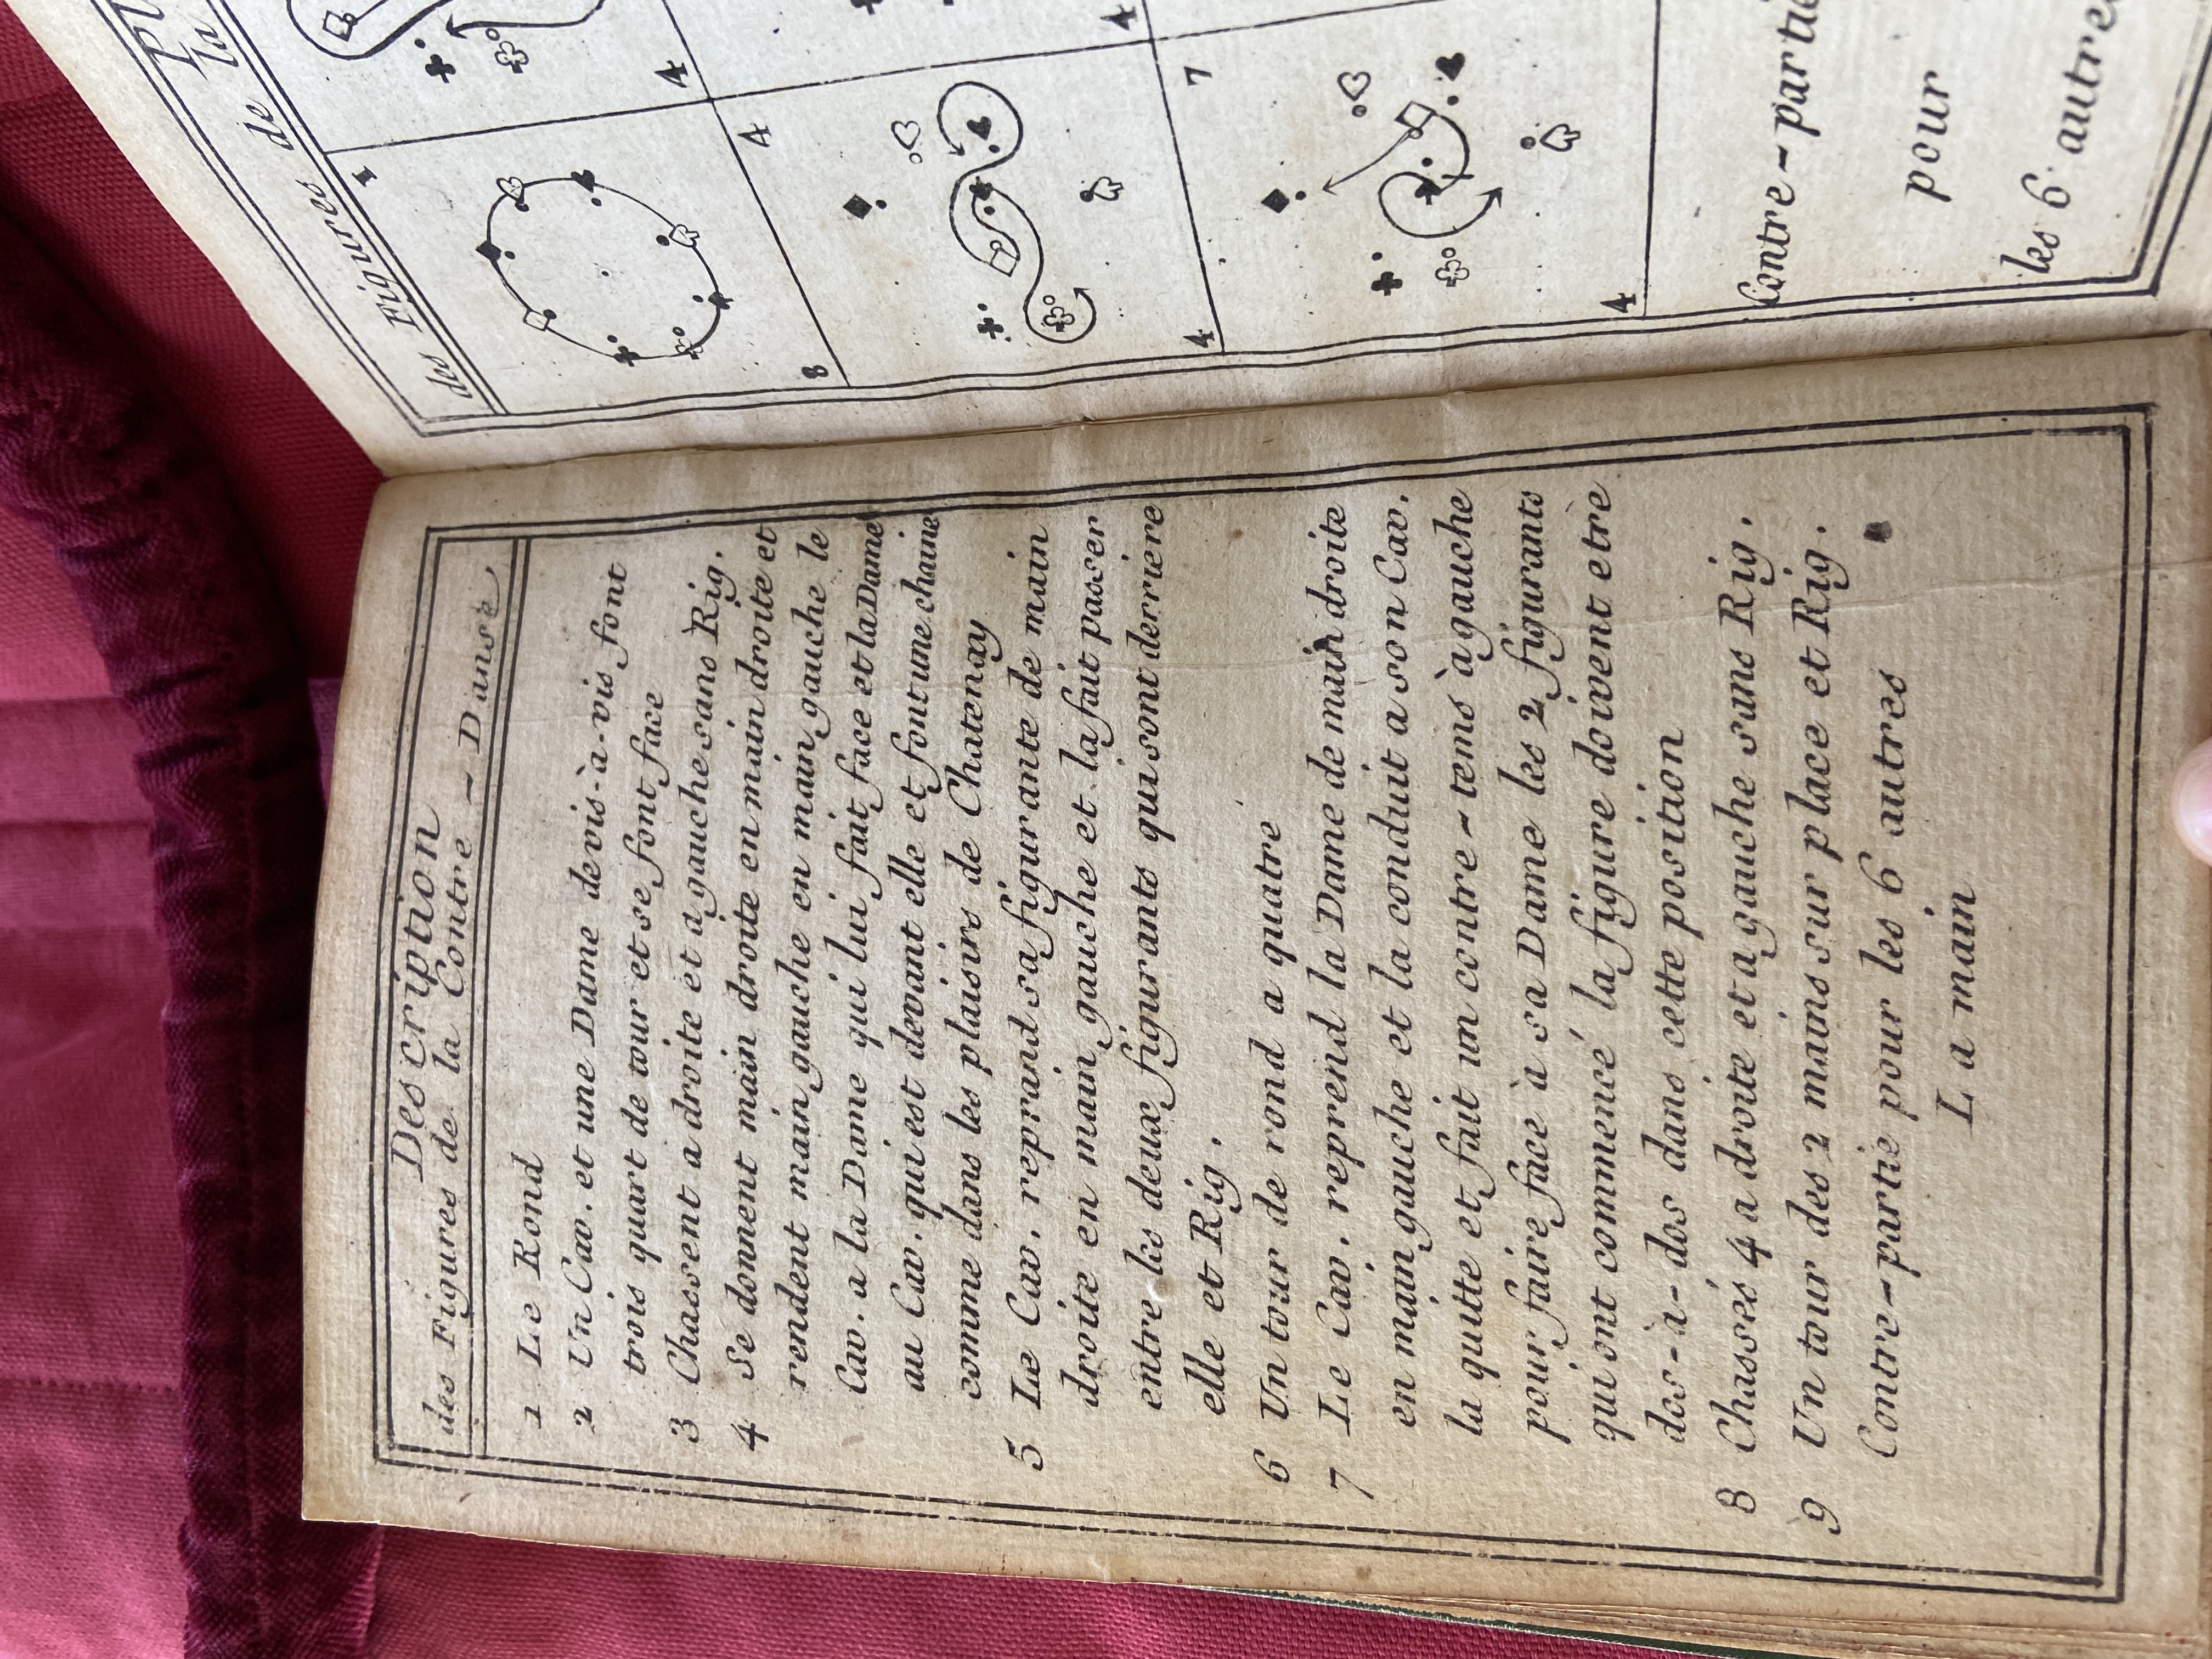 Description
des Figures de la Contre - Danse
1 Le Rond
2 Un Cav. et une Dame de vis-à-vis font
trois quart de tour et se font face
3 Chassent a droite et a gauche sans Rig.
4 Se donnent main droite en main droite et
rendent main gauche en main gauche le
Cav. a la Dame qui lui fait face et la Dame
au Cav. qui est devant elle et font une chaine
comme dans les plaisirs de Chatenay
5 Le Cav. reprand sa figurante de main
droite en main gauche et la fait passer
entre les deux figurants qui sont derriere
elle et Rig.
6 Un tour de rond a quatre
7 Le Cav. reprend la Dame de main droite
en main gauche et la conduit a son Cav.
la quitte et fait un contre-tems à gauche
pour faire face à sa Dame les 2 figurants
qui ont commencé la figure doivent etre
dos-à-dos dans cette position
8 Chassés 4 a droite et a gauche sans Rig.
9 Un tour des 2 mains sur place et Rig.
Contre-partie pour les 6 autres
La main
des Figures de la
1
4
8
4
4
4
7
4
Contre-partie
pour
les 6 autres